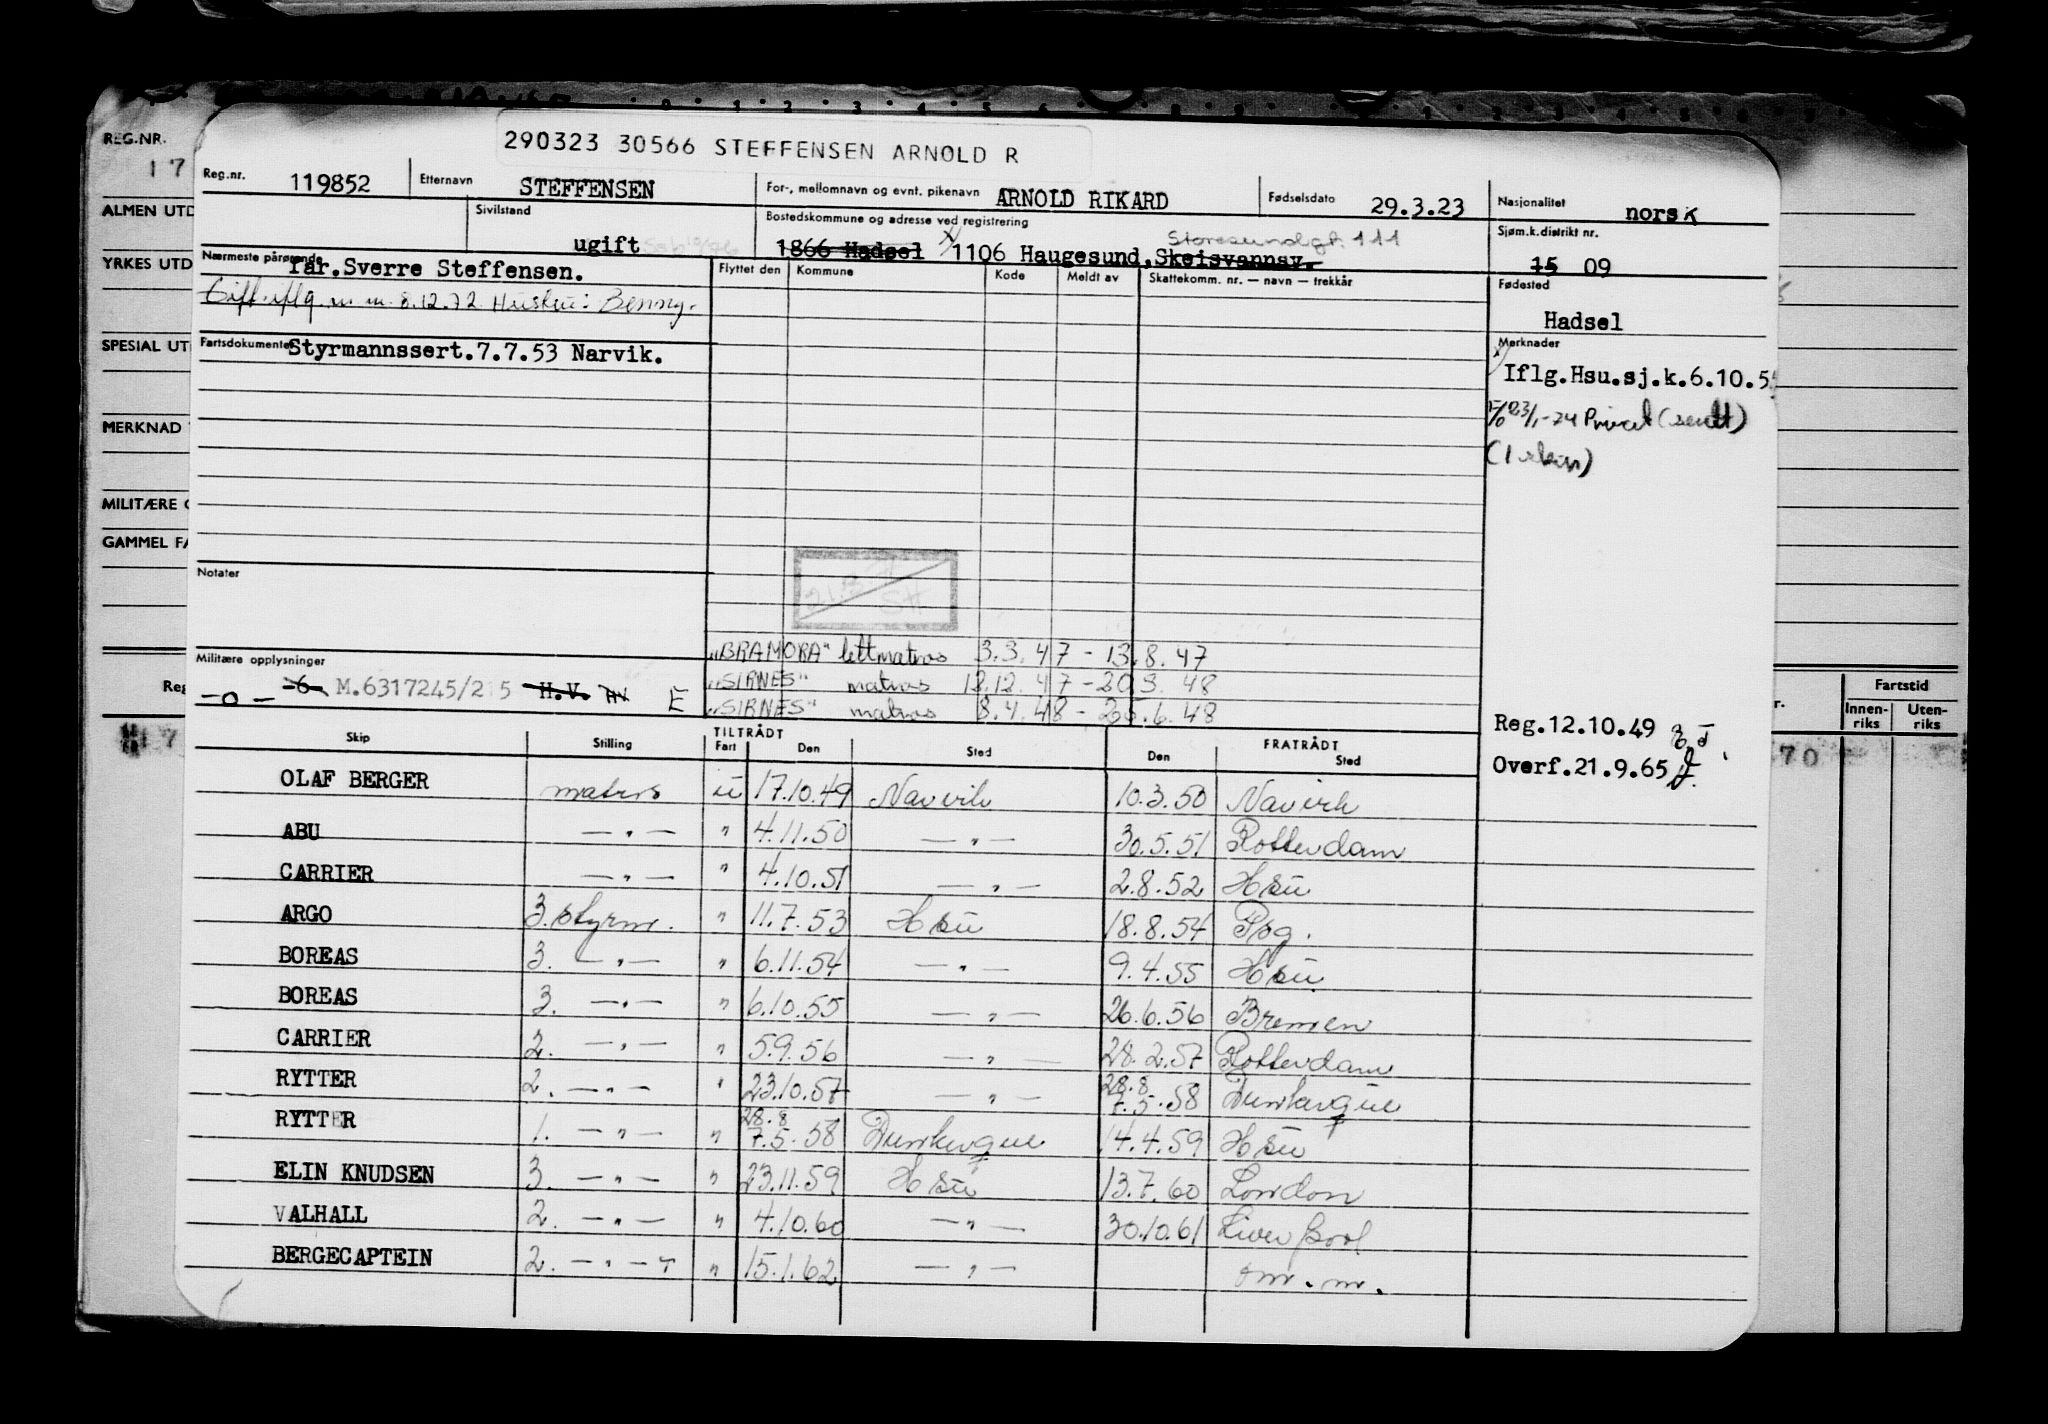 290323 30566 STEFFENSEN ARNOLD R
REG.NR.
17
ALMEN UTD
YRKES UTD
SPESIAL UT
MERKNAD
MILITÆRE
GAMMEL FA
Reg.nr. 119852 Etternavn STEFFENSEN For-, mellomnavn og evnt. pikenavn ARNOLD RIKARD Fødselsdato 29.3.23 Nasjonalitet norsk
Sivilstand ugift Bostedskommune og adresse ved registrering Sjøm.k.distrikt nr.
Storesundgt. 111
1866 Hadsel x) 1106 Haugesund, Skeisvannsv. 15 09
Nærmeste pårørende Far. Sverre Steffensen.
Gift iflg. m m 8.12.72 Hustru: Benny.
Flyttet den Kommune Kode Meldt av Skattekomm. nr. — navn — trekkår
Fødested
Hadsel
Fartsdokumenter Styrmannssert.7.7.53 Narvik.
Merknader
x) Iflg.Hsu.sj.k.6.10.5
23/1-74 Privat (sendt)
Notater
"BRAMORA" lettmatros 3.3.47 - 13.8.47
"SIRNES" matros 12.12.47 - 20.3.48
"SIRNES" matros 8.4.48 - 25.6.48
Militære opplysninger
-o- -6- M.6317245/215 H.V. E
Reg.12.10.49
Overf.21.9.65
Fartstid
Innenriks Utenriks
70
Skip Stilling TILTRÅDT Fart Den Sted FRATRÅDT Den Sted
OLAF BERGER matros u 17.10.49 Narvik 10.3.50 Narvik
ABU — " — " 4.11.50 — " — 30.5.51 Rotterdam
CARRIER — " — " 4.10.51 — " — 2.8.52 Hsu
ARGO 3. styrm. " 11.7.53 Hsu 18.8.54 Psg.
BOREAS 3. — " — " 6.11.54 — " — 9.4.55 Hsu
BOREAS 3. — " — " 6.10.55 — " — 26.6.56 Bremen
CARRIER 2. — " — " 5.9.56 — " — 28.2.57 Rotterdam
RYTTER 2. — " — " 23.10.57 — " — 28.8 7.5.58 Dunkerque
RYTTER 1. — " — " 28.8 7.5.58 Dunkerque 14.4.59 Hsu
ELIN KNUDSEN 3. — " — " 23.11.59 Hsu 13.7.60 London
VALHALL 2. — " — " 4.10.60 — " — 30.10.61 Liverpool
BERGECAPTEIN 2. — " — " 15.1.62 — " —